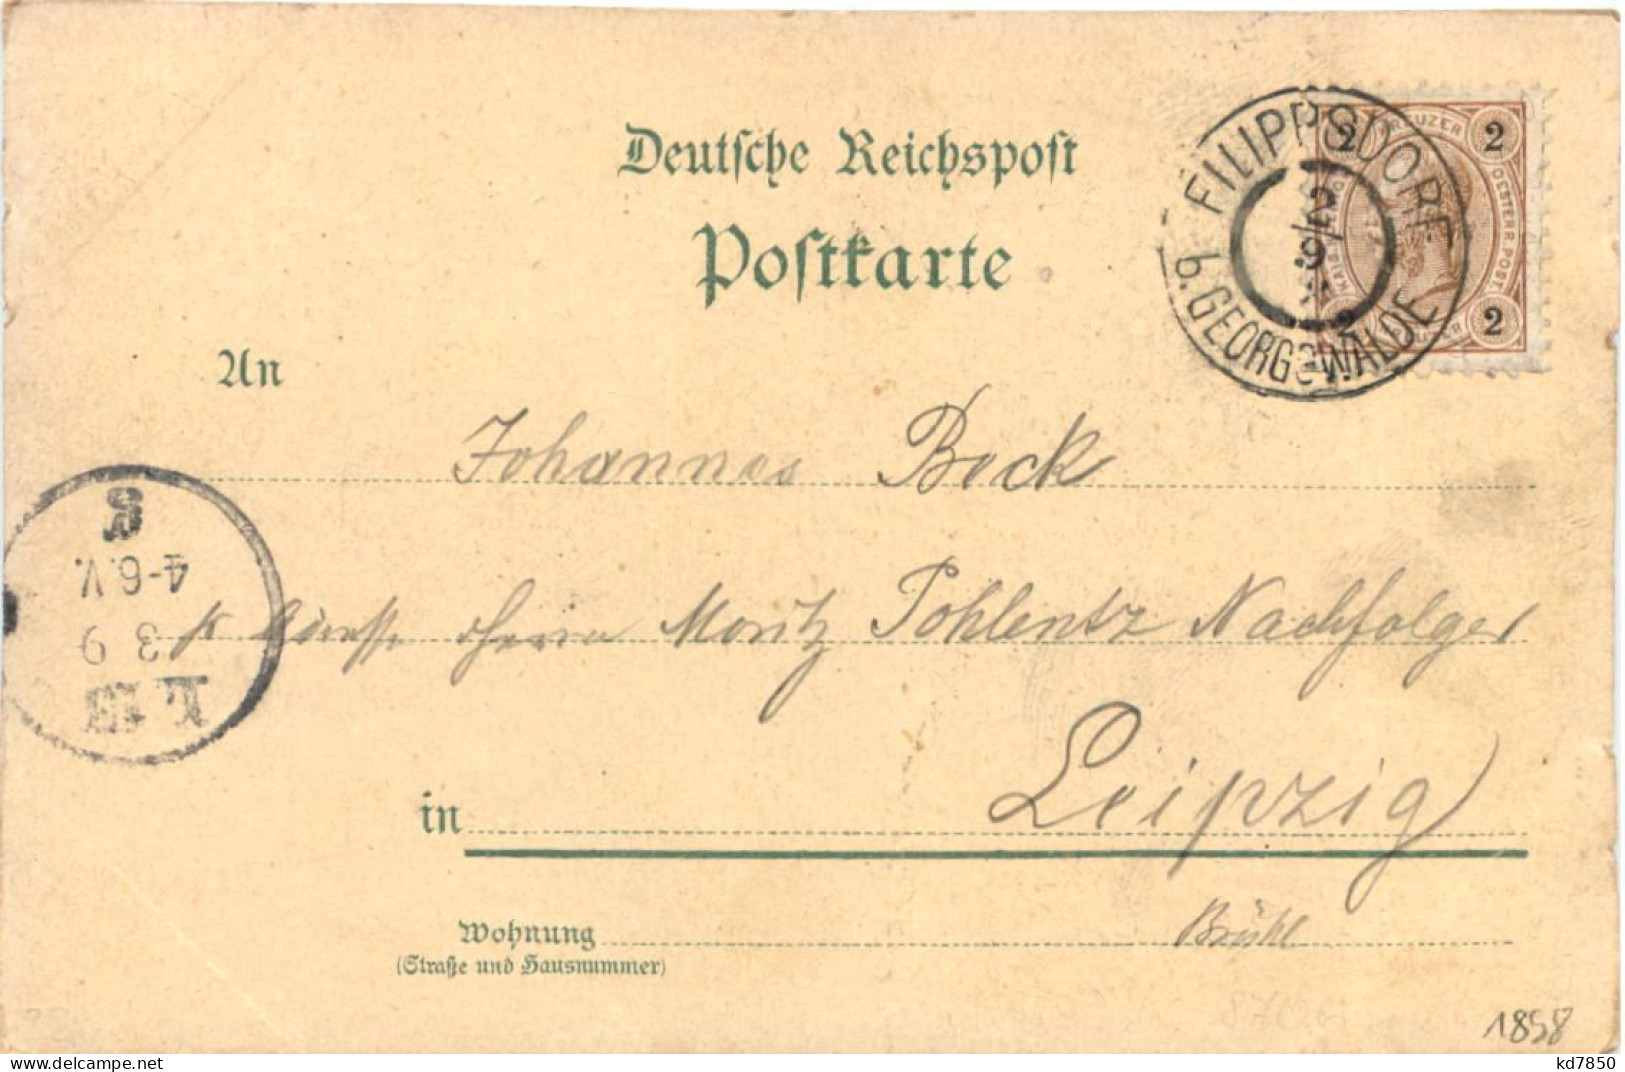 Deutsche Reichspost
Postkarte
FILIPPSDORF
b. GEORGSWALDE
2/9
2 KREUZER 2
OESTERR. POST.
2
An
Johannes Bock
Adresse Herrn Moritz Pohlentz Nachfolger
in Leipzig
Wohnung Brühl
(Straße und Hausnummer)
4-6.V.
3 9
1898
kd7850